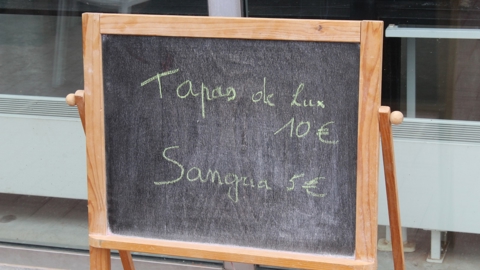 Tapas de Lux
10€
Sangria 5€